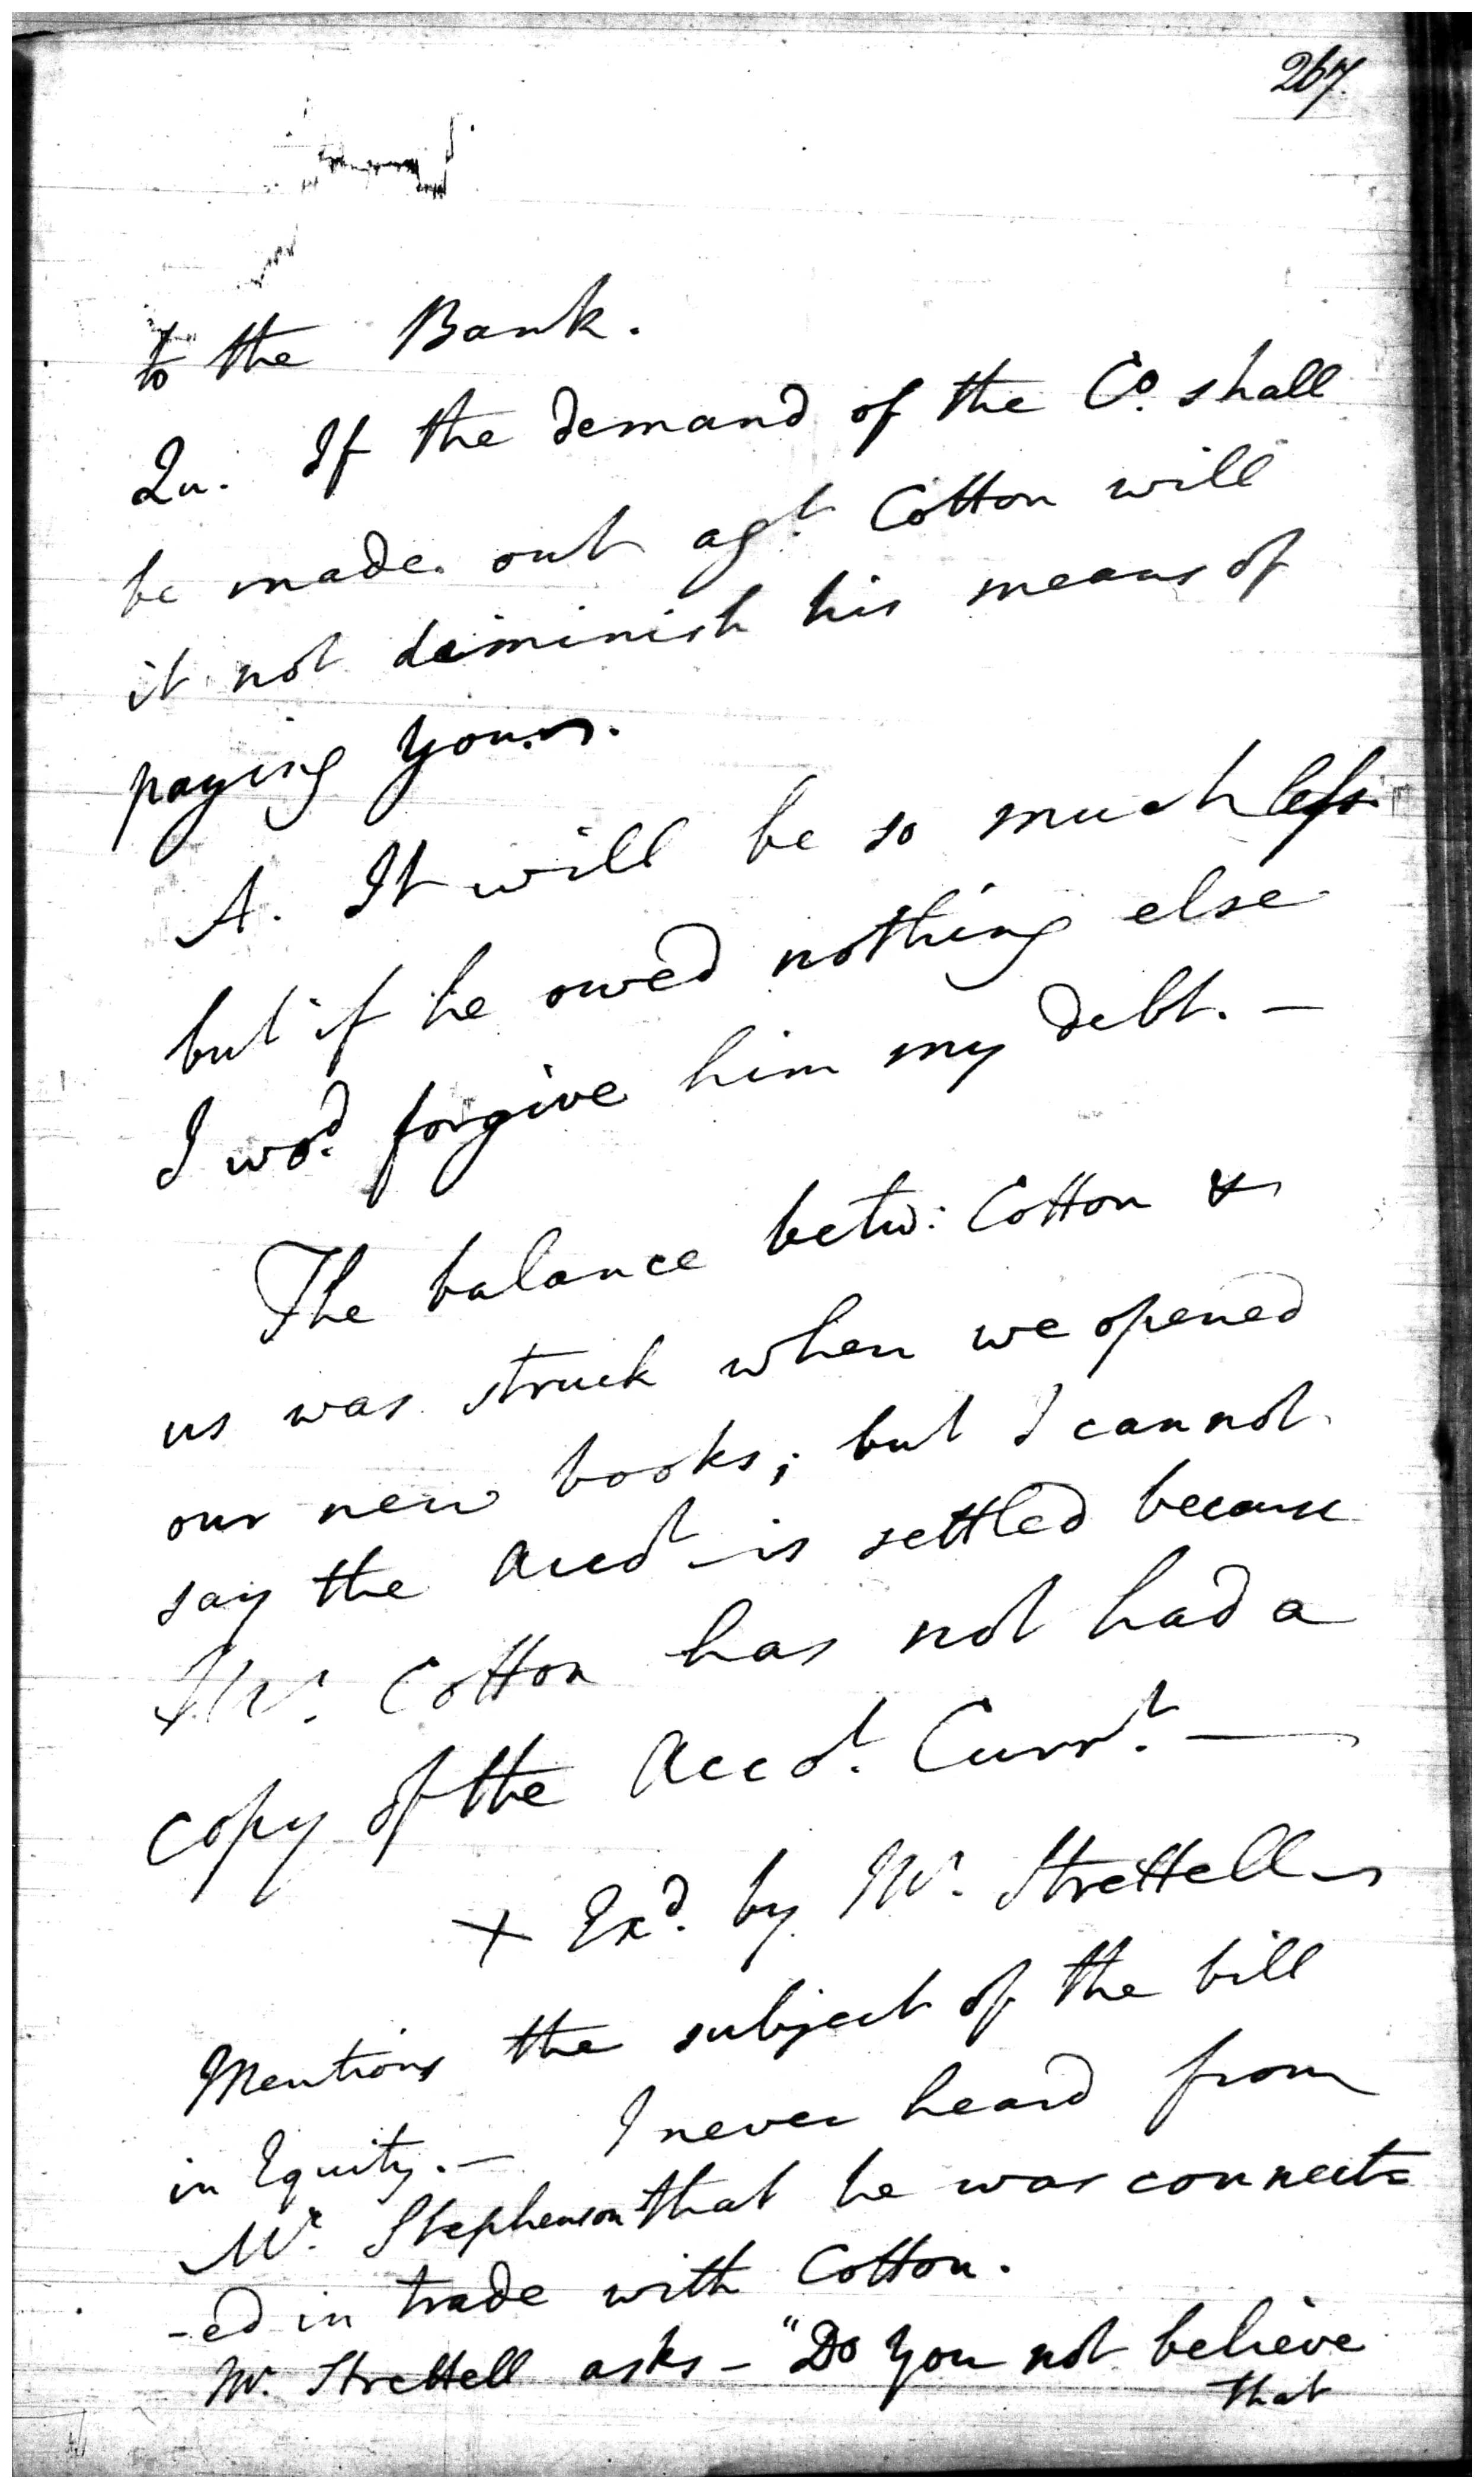 267.
to the Bank.
Qu. If the demand of the Co. shall
be made out agt. Cotton will
it not diminish his means of
paying yours.
A. It will be so much less
but if he owed nothing else
I wod. forgive him my debt. —
The balance betw: Cotton &
us was struck when we opened
our new books; but I cannot
say the Accot is settled because
Mr. Cotton has not had a
copy of the Accot. Currt. —
X Exd. by Mr. Strettell
Mentions the subject of the bill
in Equity. — I never heard from
Mr. Stephenson that he was connect=
-ed in trade with Cotton.
Mr. Strettell asks — "Do you not believe
that